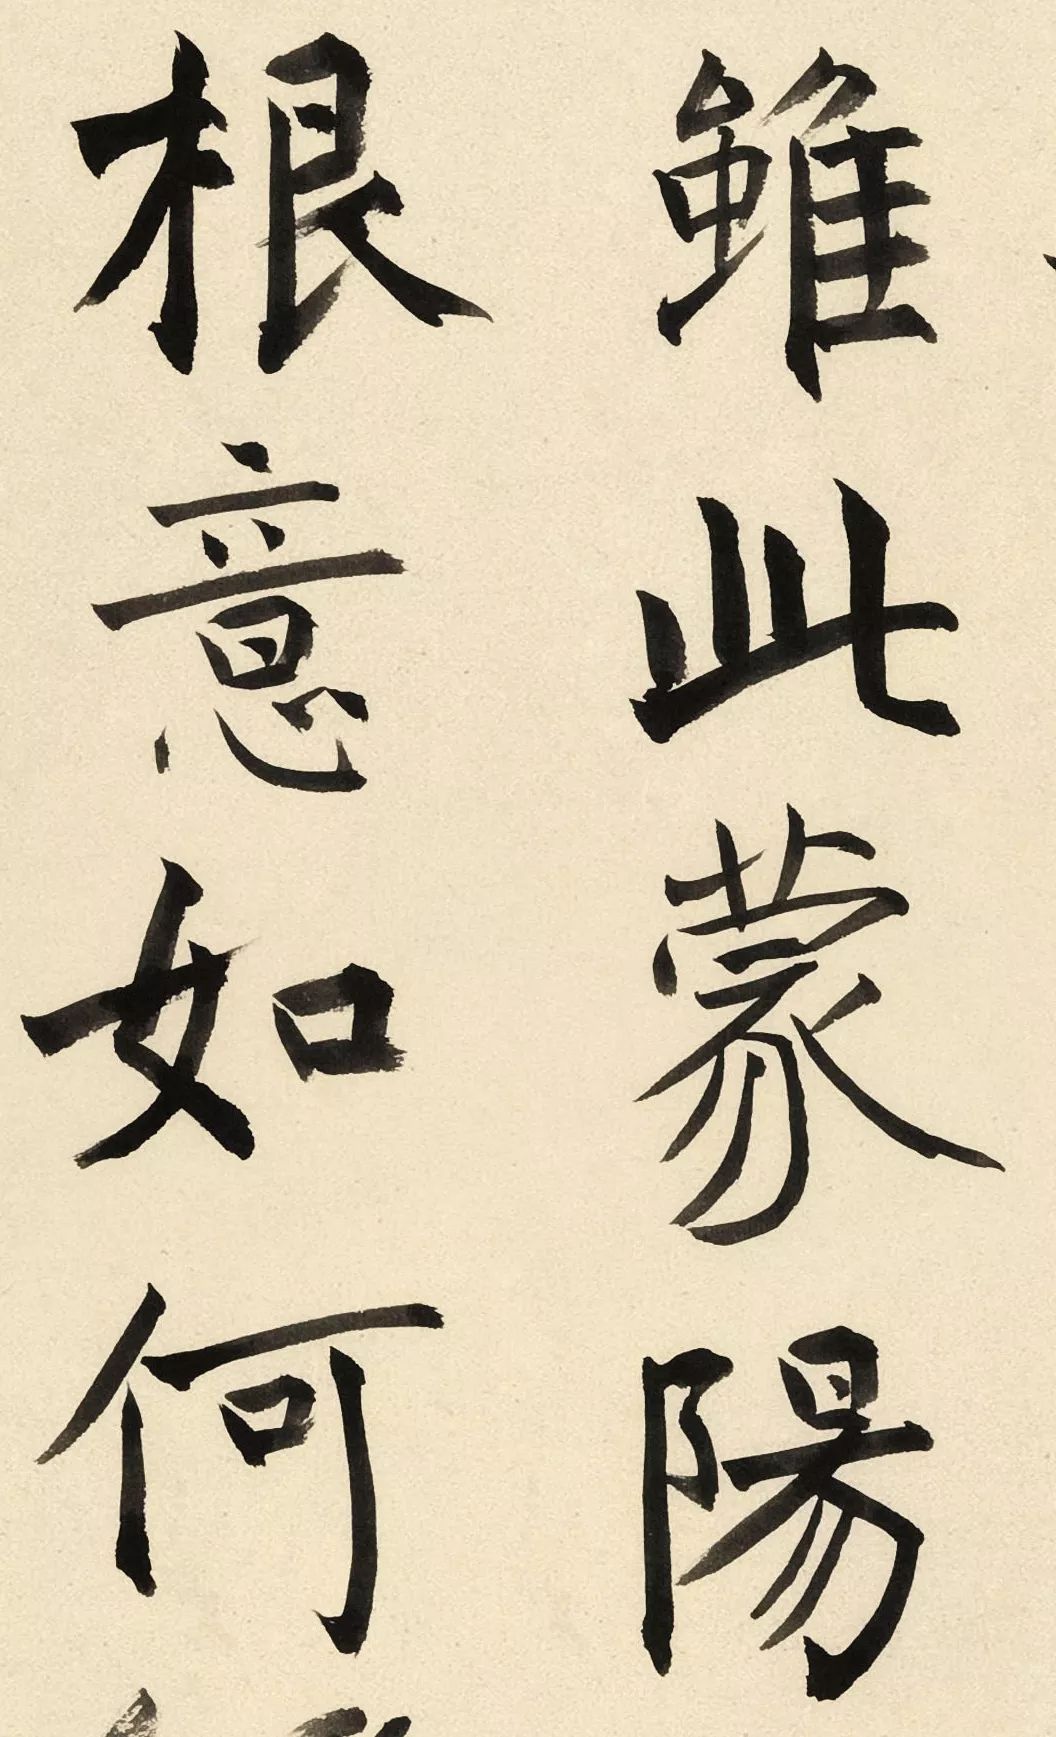 雖此蒙陽
根意如何